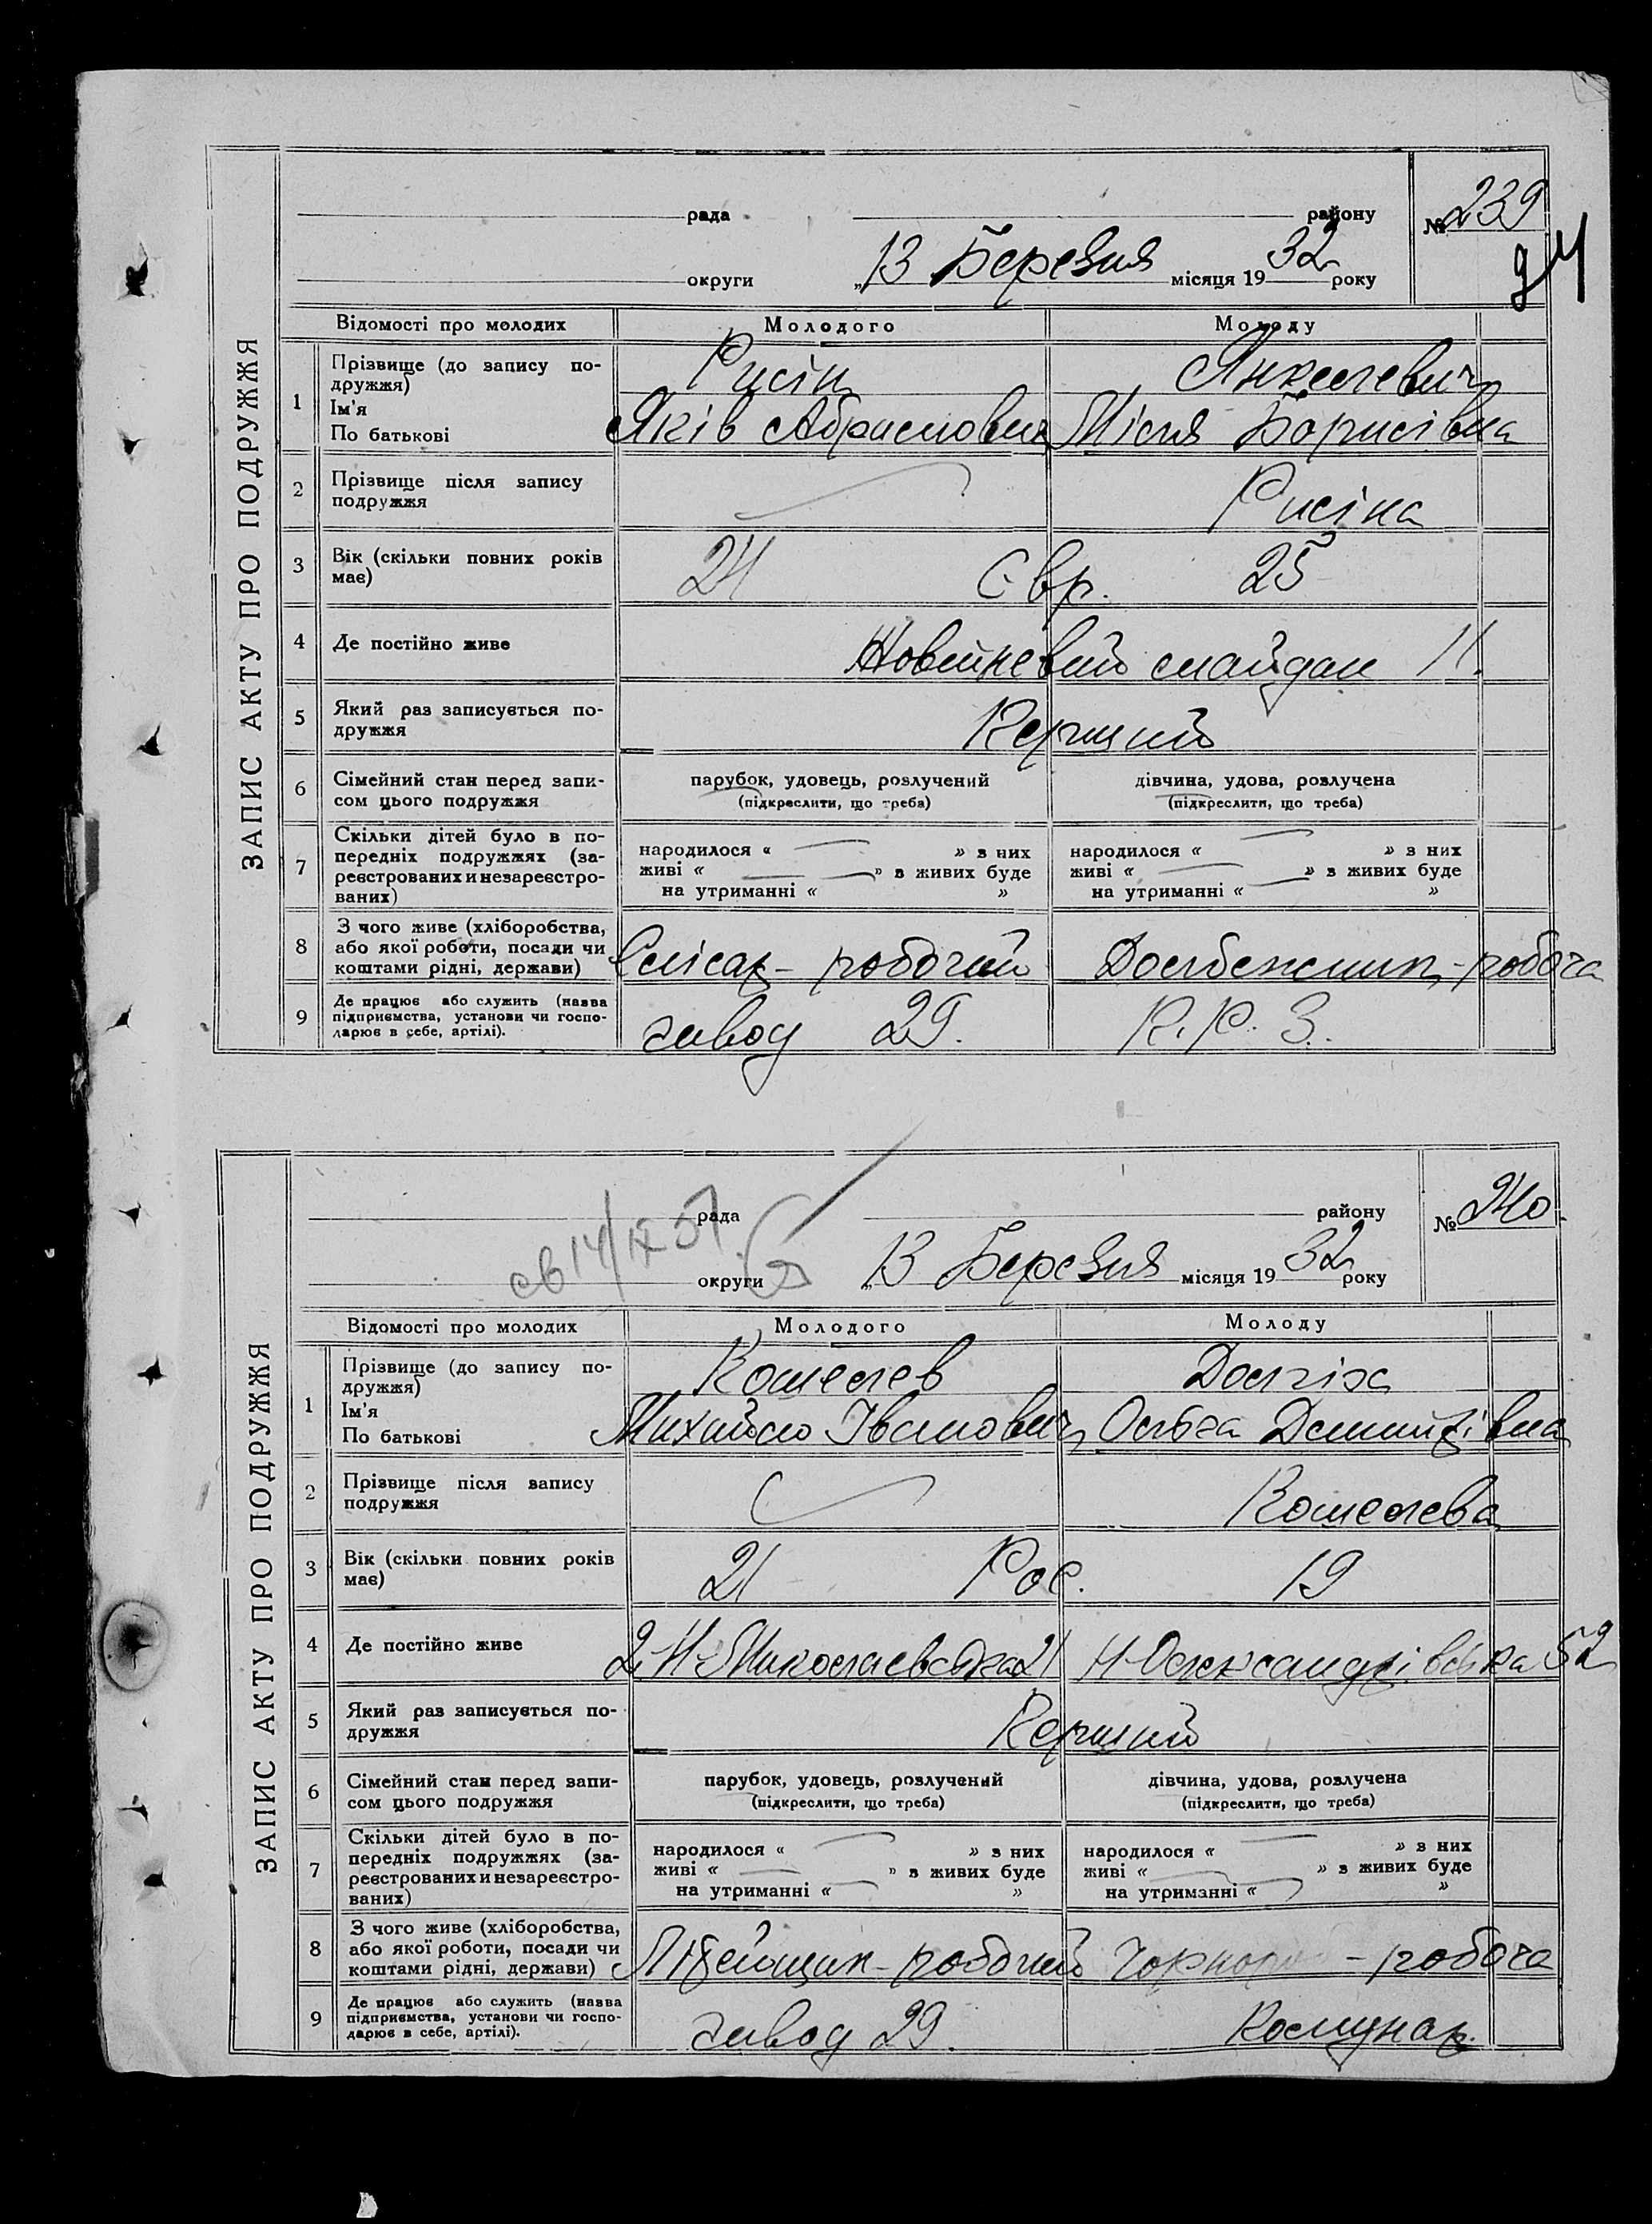 ЗАПИС АКТУ ПРО ПОДРУЖЖЯ
рада району № 239
округи „13 Березня місяця 1932 року
Відомості про молодих Молодого Молоду
1 Прізвище (до запису по- Русін Янкелевич
дружжя)
Ім'я Яків Абрамович
По батькові Борисівна
2 Прізвище після запису Русіна
подружжя
3 Вік (скільки повних років 24 Євр. 25
має)
4 Де постійно живе майдан 11.
5 Який раз записується по- Перший
дружжя
6 Сімейний стан перед запи- парубок, удовець, розлучений дівчина, удова, розлучена
сом цього подружжя (підкреслити, що треба) (підкреслити, що треба)
7 Скільки дітей було в по- народилося « » з них народилося « » з них
передніх подружжях (за- живі « » в живих буде живі « » з живих буде
реєстрованих и незареєстро- на утриманні « » на утриманні « »
ваних)
8 З чого живе (хліборобства,
або якої роботи, посади чи Слісар - робочий - робоча
коштами рідні, держави)
9 Де працює або служить (назва
підприємства, установи чи госпо- завод 29.
дарює в себе, артілі).
ЗАПИС АКТУ ПРО ПОДРУЖЖЯ
рада району № 240.
округи „13 Березня місяця 1932 року
Відомості про молодих Молодого Молоду
1 Прізвище (до запису по- Кошелев Долгіх
дружжя)
Ім'я Михайло Іванович Ольга Дмитрівна
По батькові
2 Прізвище після запису Кошелева
подружжя
3 Вік (скільки повних років 21 Рос. 19
має)
4 Де постійно живе 2 Н-Миколаєвська 21 Н-Олександрівська 52
5 Який раз записується по- Перший
дружжя
6 Сімейний стан перед запи- парубок, удовець, розлучений дівчина, удова, розлучена
сом цього подружжя (підкреслити, що треба) (підкреслити, що треба)
7 Скільки дітей було в по- народилося « » з них народилося « » з них
передніх подружжях (за- живі « » в живих буде живі « » з живих буде
реєстрованих и незареєстро- на утриманні « » на утриманні « »
ваних)
8 З чого живе (хліборобства,
або якої роботи, посади чи - робочий - робоча
коштами рідні, держави)
9 Де працює або служить (назва
підприємства, установи чи госпо- завод 29. Комунар.
дарює в себе, артілі).